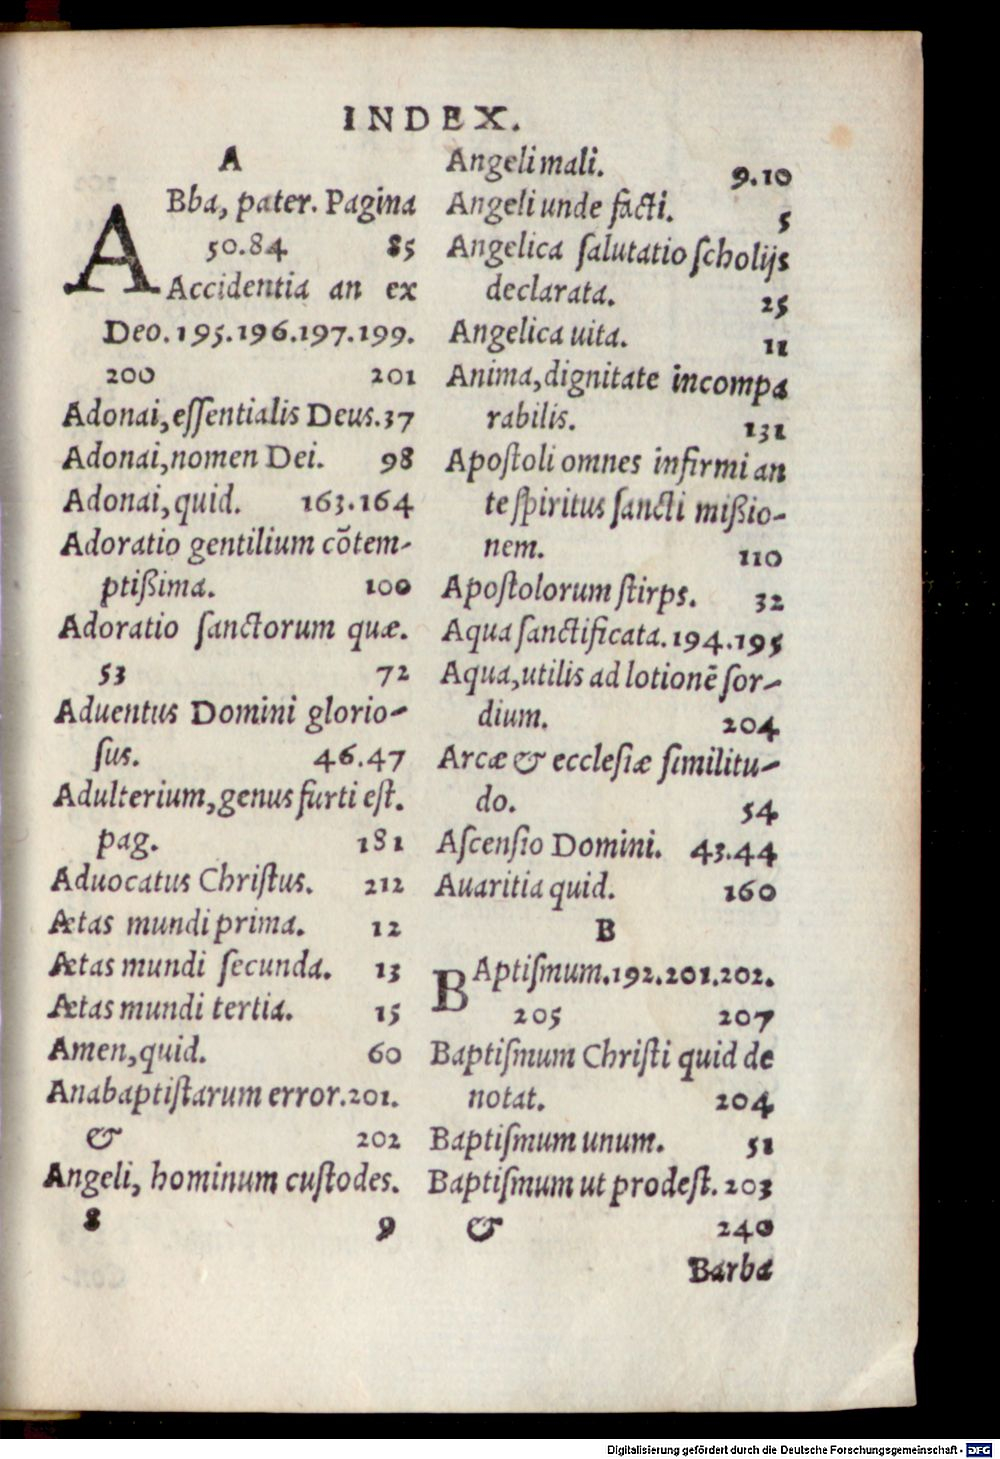 INDEX.
A
ABba, pater. Pagina
50.84 85
Accidentia an ex
Deo. 195.196.197.199.
200 201
Adonai, eſſentialis Deus. 37
Adonai, nomen Dei. 98
Adonai, quid. 163.164
Adoratio gentilium cõtem-
ptißima. 100
Adoratio ſanctorum quæ.
53 72
Aduentus Domini glorio-
ſus. 46.47
Adulterium, genus furti eſt.
pag. 181
Aduocatus Chriſtus. 212
Ætas mundi prima. 12
Ætas mundi ſecunda. 13
Ætas mundi tertia. 15
Amen, quid. 60
Anabaptiſtarum error. 201.
& 202
Angeli, hominum cuſtodes.
8 9
Angeli mali. 9.10
Angeli unde facti. 5
Angelica ſalutatio ſcholijs
declarata. 25
Angelica uita. 11
Anima, dignitate incompa
rabilis. 131
Apoſtoli omnes infirmi an
te ſpiritus ſancti mißio-
nem. 110
Apoſtolorum ſtirps. 32
Aqua ſanctificata. 194.195
Aqua, utilis ad lotionẽ ſor-
dium. 204
Arcæ & eccleſiæ ſimilitu-
do. 54
Aſcenſio Domini. 43.44
Auaritia quid. 160
B
BAptiſmum. 192.201.202.
205 207
Baptiſmum Chriſti quid de
notat. 204
Baptiſmum unum. 51
Baptiſmum ut prodeſt. 203
& 240
Barba
Digitalisierung gefördert durch die Deutsche Forschungsgemeinschaft - DFG